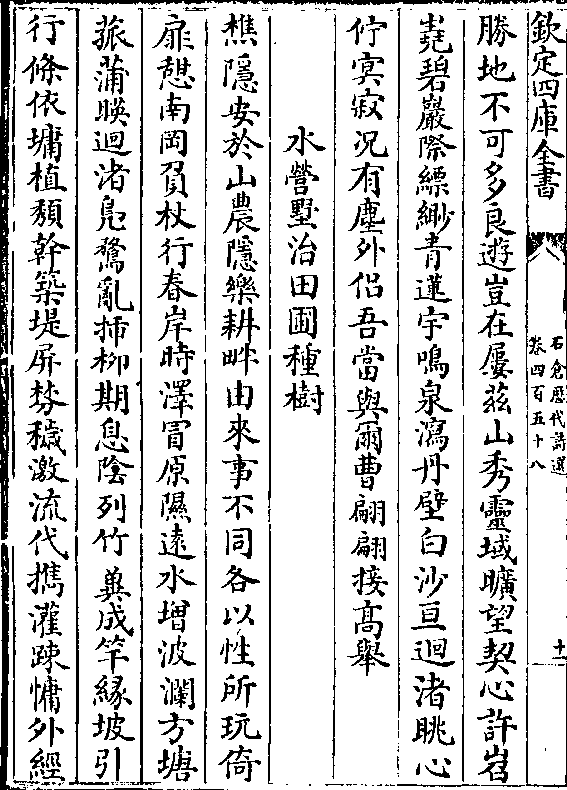 欽定四庫全書
石倉歷代詩選
卷四百五十八
十
勝地不可多良遊豈在屢茲山秀靈域曠望契心許岧
嶤碧巖際縹緲青蓮宇鳴泉瀉丹壁白沙亘迴渚眺心
佇寞寂况有塵外侶吾當與爾曹翩翩接高舉
水營墅治田圃種樹
樵隱安於山農隱樂耕畔由來事不同各以性所玩倚
扉憩南岡負杖行春岸時澤冒原隰遠水增波瀾方塘
菰蒲暎迴渚鳧鷖亂揷柳期息陰列竹冀成竿緣坡引
行條依墉植頹幹築堤屏棼穢激流代擕灌疎慵外經